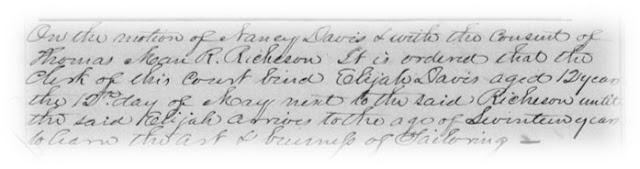 On the motion of Nancy Davis & with the consent of
Thomas Man R. Richeson It is ordered that the
Clerk of this Court bind Elijah Davis aged 12 years
the 12th day of May next to the said Richeson until
the said Elijah arrives to the age of Seventeen years
to learn the art & business of Tailoring